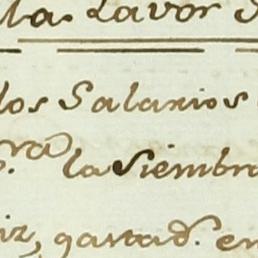 la Lavor
los Salarios
la Siembra
iz, gastad.^s en